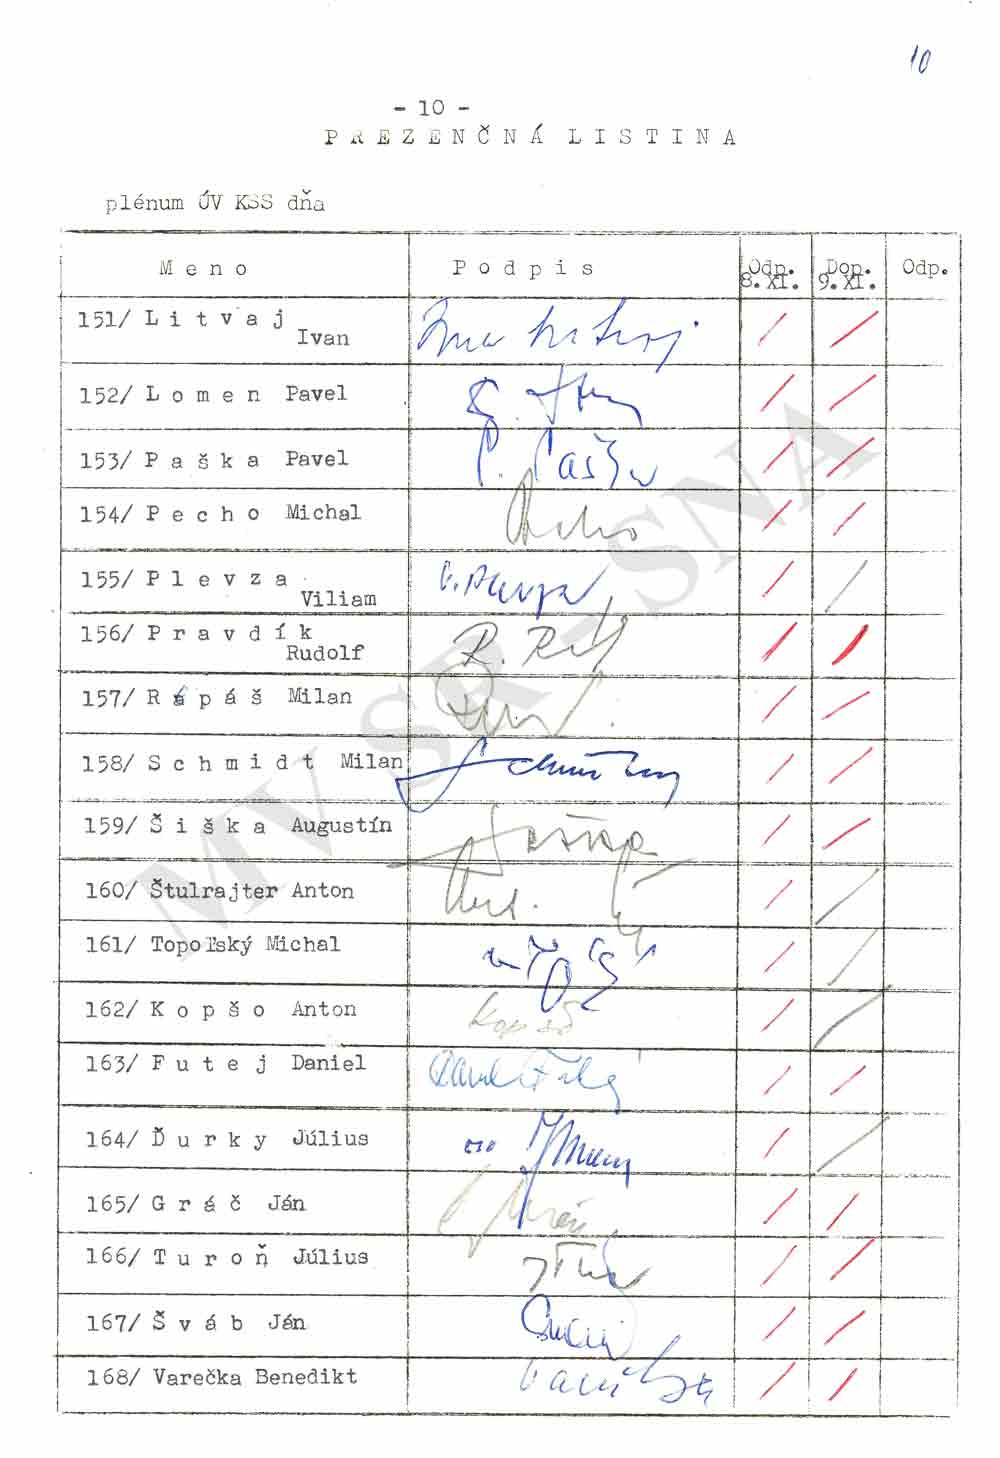 10
- 10 -
PREZENČNÁ LISTINA
plénum ÚV KSS dňa
Meno Podpis Odp. 8. XI. Dop. 9. XI. Odp.
151/ Litvaj
Ivan
152/ Lomen Pavel
153/ Paška Pavel P. Paška
154/ Pecho Michal Pecho
155/ Plevza
Viliam
156/ Pravdík
Rudolf
157/ Répáš Milan
158/ Schmidt Milan
159/ Šiška Augustín
160/ Štulrajter Anton
161/ Topoľský Michal
162/ Kopšo Anton Kopšo
163/ Futej Daniel
164/ Ďurky Július
165/ Gráč Ján
166/ Turoň Július
167/ Šváb Ján
168/ Varečka Benedikt
MV SR - SNA